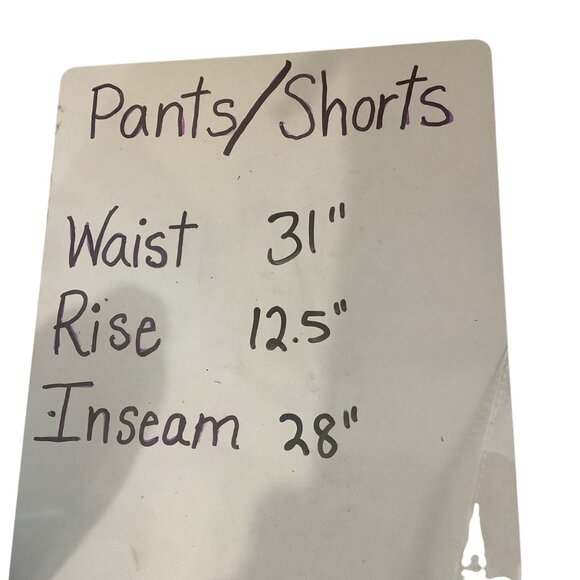 Pants/Shorts
Waist 31"
Rise 12.5"
Inseam 28"